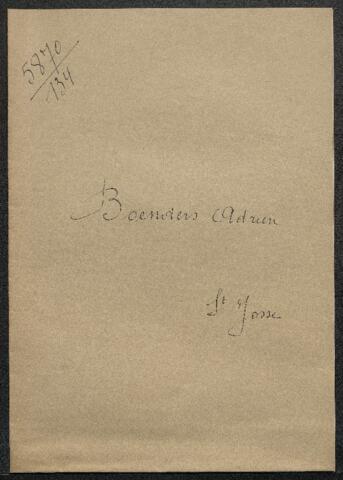 5870/134
Boemiers Adrien
St Josse